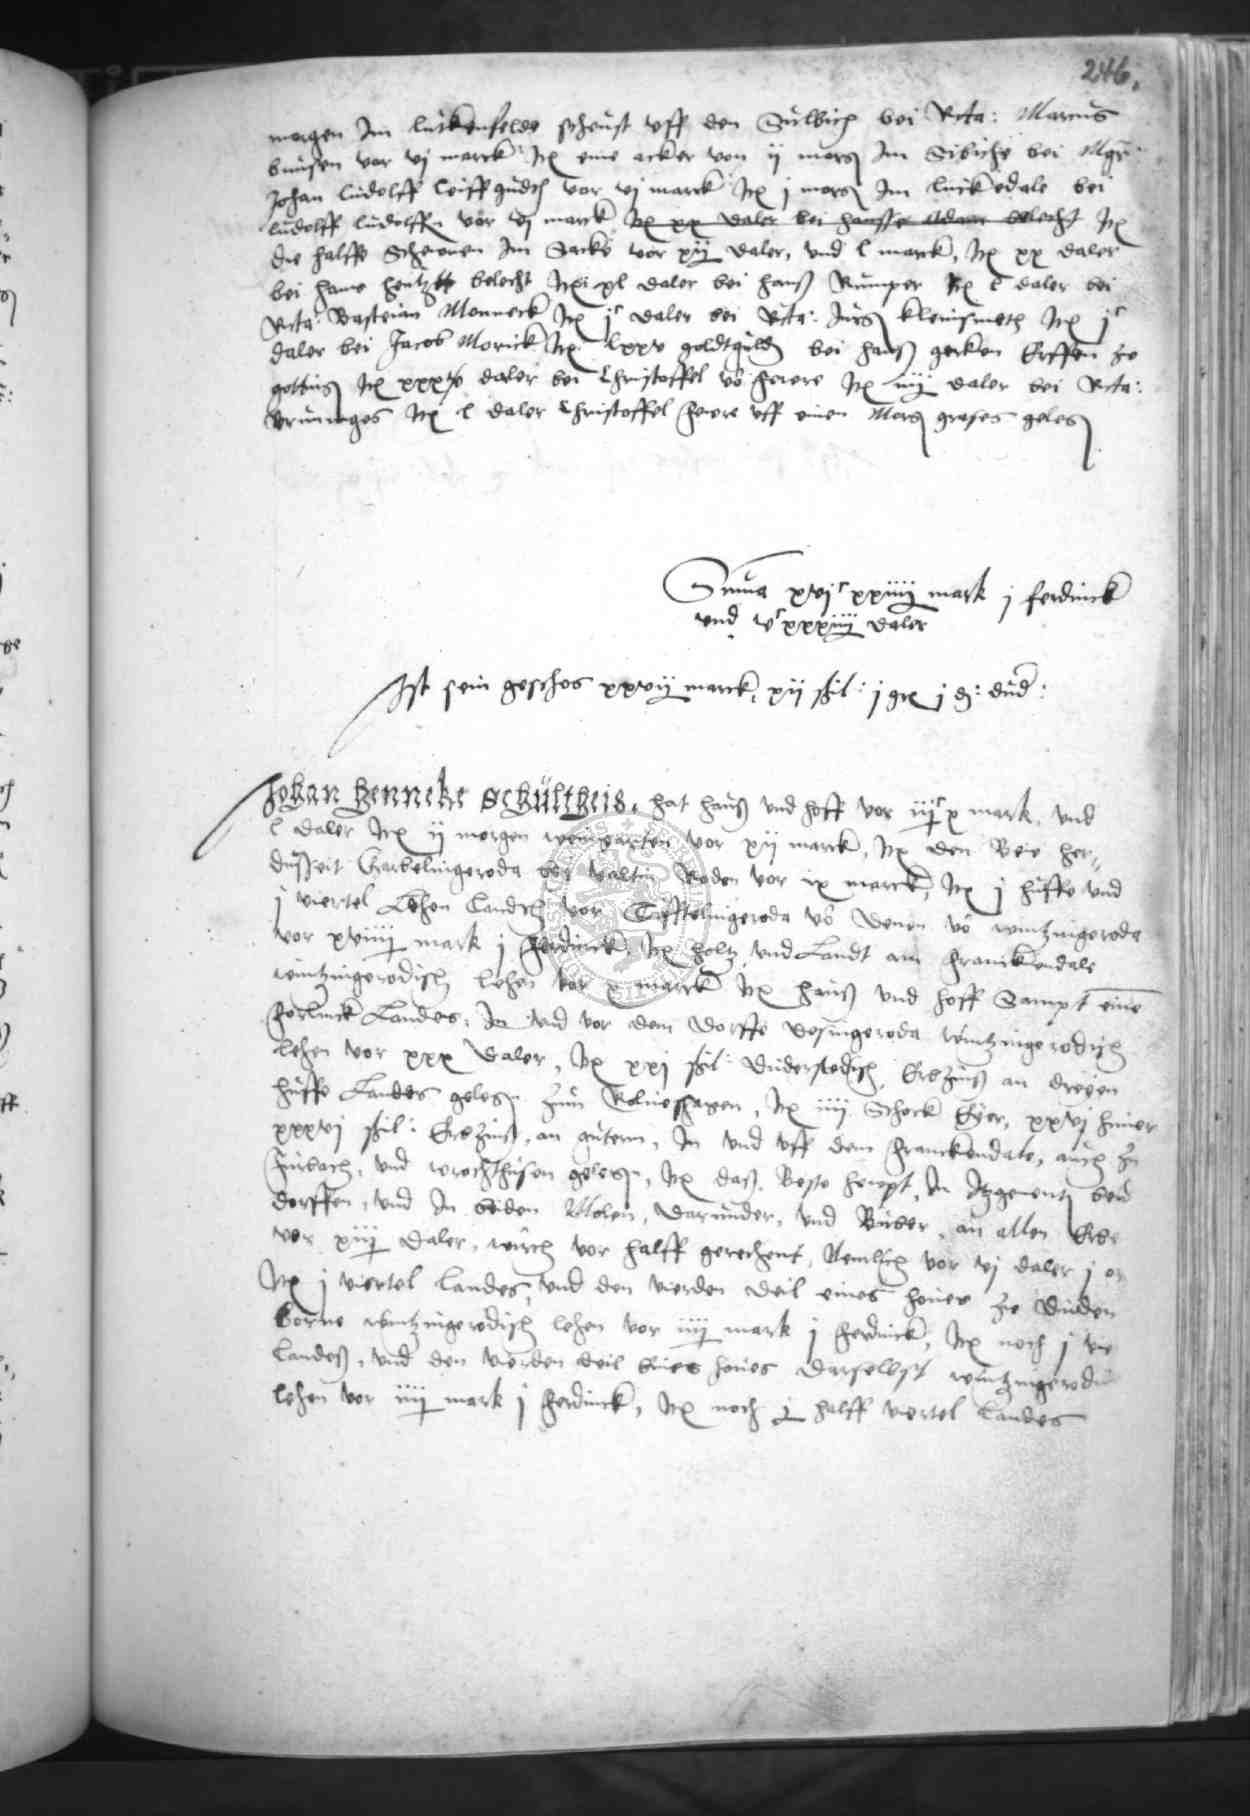 246.
morgen Im luckenfelde scheust vff den Sulbich bei Rcta: Marcus
bunsen vor vj marck Itē eine acker von ij morg Im Sibiche bei Mgr:
Johan ludolff leiffgudth vor vj marck Itē j morg Im luckedale bei
ludolff ludolffn vor vj marck Itē xx daler bei hansse Adam belecht Itē
die halffe Schewnen Im Sacke vor xij daler, vnd l marck, Itē xx daler
bei hans belecht Itē xl daler bei hanß Rumper Itē l daler bei
Rcta: Bastian Monneck Itē jc daler bei Rcta: Jurg kleinsmeth Itē jc
daler bei Jacob Morick Itē lxxv goldtguld bei hanß gerken Erffen zu
gotting Itē daler bei Christoffel vō hewre Itē iiij daler bei Rcta:
bruninges Itē l daler Christoffel hewre vff einen Morg grases geleg
Suma xvjc xxiiij mark j ferdinck
vnd vc xxxiiij daler
Ist sein geschos xxvij marck, xij schil: j gr j d: dud:
Johan Henneke Schultheis, hat hauß vnd hoff vor iijc x mark, vnd
l daler Itē ij morgen weingarten vor xij marck, Itē den Beie her-
dußzeit Garbelingeroda vor valtin Roden vor ix marck, Itē j huffe vnd
j viertel Lehen Landth vor Tafftelingeroda vō denen vō wintzingeroda
vor xviiij mark j ferdinck, Itē holtz vnd Landt am franckendale
wintzingerodisch lehen vor x marck Itē hauß vnd hoff Sampt eine
forlinck Landes, In vnd vor dem dorffe desingeroda wintzingerodisch
lehen vor xxx daler, Itē xxj schil: duderstedisch, Erbzinß an dreyen
huffe Landes geleg zum Rolueshagen, Itē iiij Schock Eyer, xxvj huner
xxxvj schil: Erbzinß, an gutern, In vnd vff dem franckendale, auch zu
furbach, vnd wrochthusen geleg, Itē daß Beste heupt, In Itzgenent beid
dorffen, vnd In beiden Molen, darunder, vnd Burber, an allen Erbe
vor xiij daler, wirth vor halff gerechent, Nemlich vor vj daler j or
Itē j viertel landes, vnd den vierden deil eines houes zu Duden
borne wintzingerodisch lehen vor iiij mark j ferdinck, Itē noch j vie
landeß, vnd den vierden deil eines houes darselbst wintzingerodi
lehen vor iiij mark j ferdinck, Itē noch j halff viertel landes